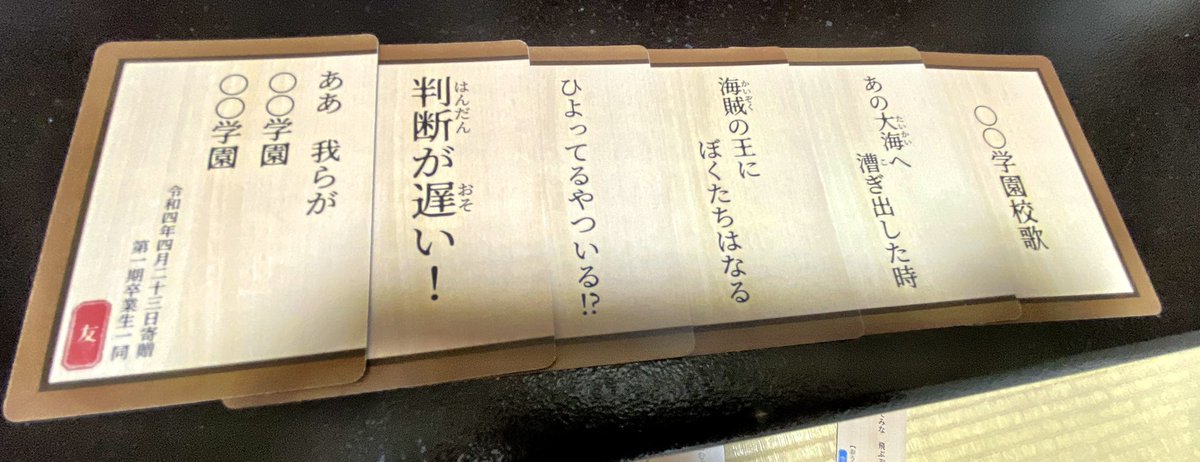 〇〇学園校歌
あの大海へ
漕ぎ出した時
海賊の王に
ぼくたちはなる
ひよってるやついる!?
判断が遅い！
ああ　我らが
〇〇学園
〇〇学園
令和四年四月二十三日寄贈
第一期卒業生一同
友